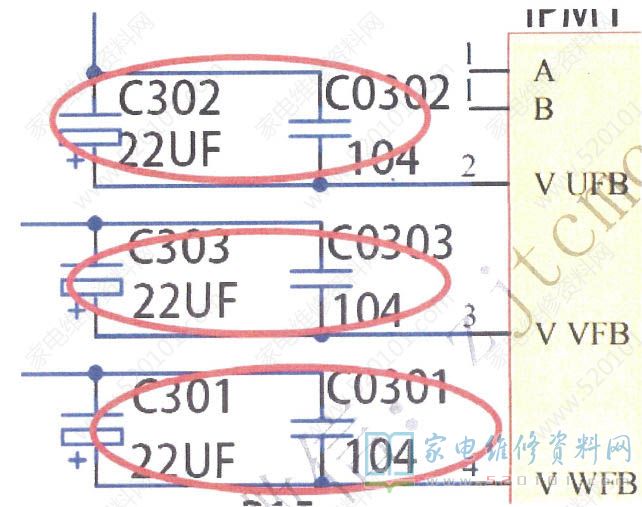 IPM1
1
A
C302
C0302
1
B
22UF
104
2
V UFB
C303
C0303
22UF
104
3
V VFB
C301
C0301
22UF
104
4
V WFB
家电维修资料网
www.520101.com